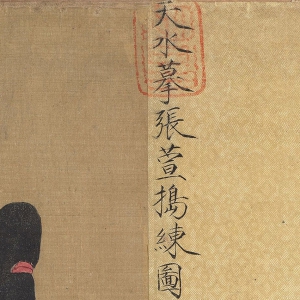 天水摹張萱搗練圖